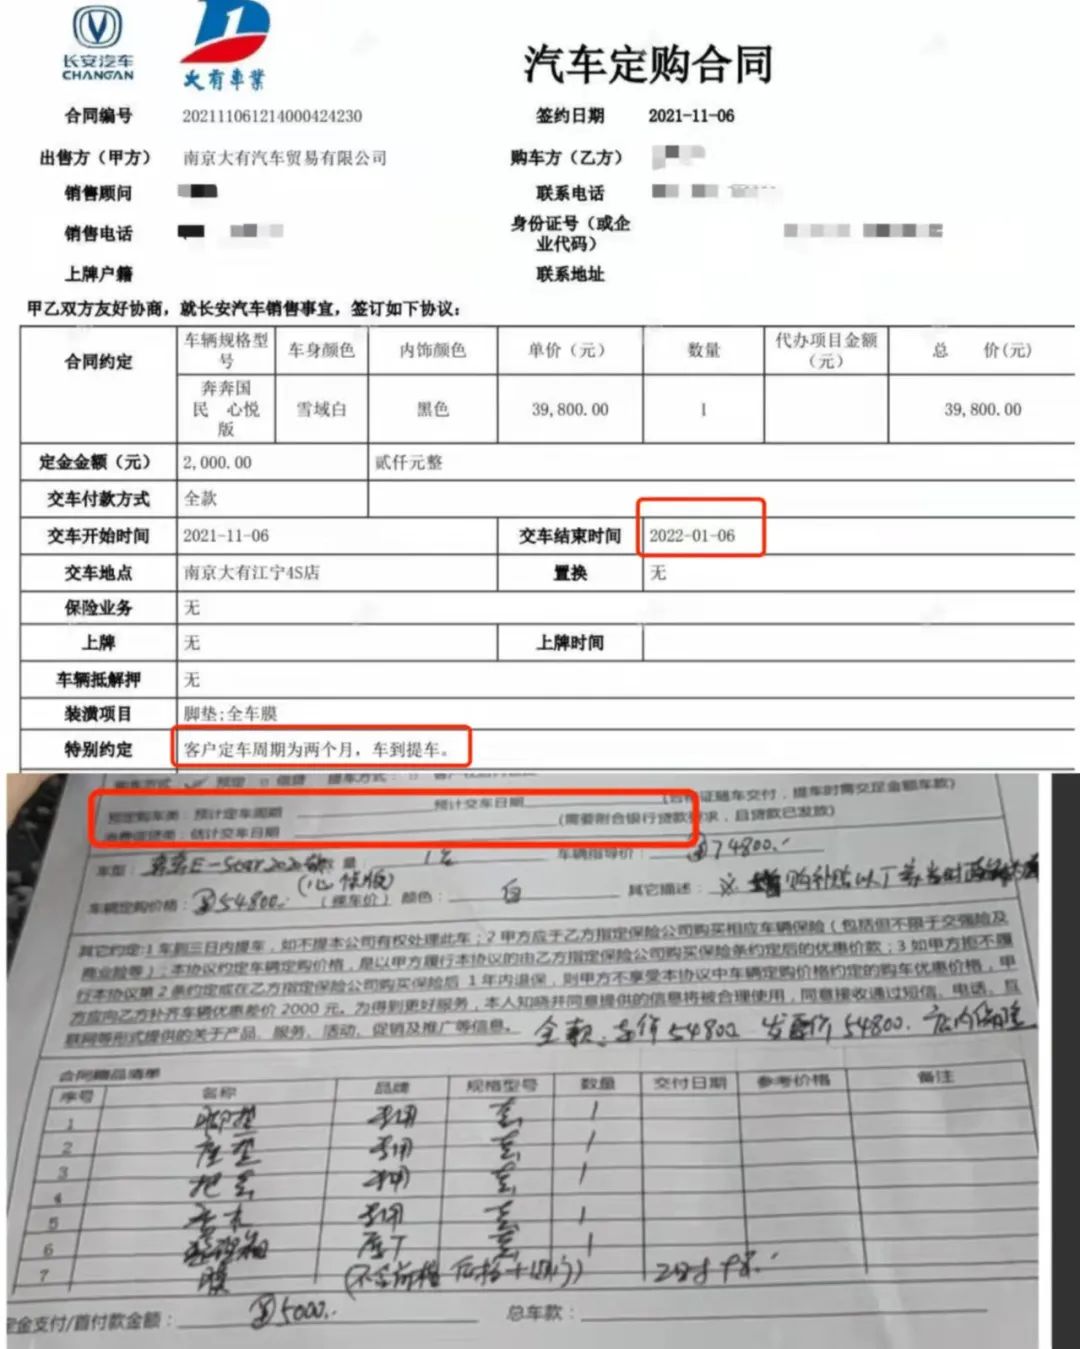 长安汽车
CHANGAN
大有車業
汽车定购合同
合同编号 202111061214000424230 签约日期 2021-11-06
出售方（甲方） 南京大有汽车贸易有限公司 购车方（乙方）
销售顾问 联系电话
销售电话 身份证号（或企业代码）
上牌户籍 联系地址
甲乙双方友好协商，就长安汽车销售事宜，签订如下协议：
合同约定 车辆规格型号 车身颜色 内饰颜色 单价（元） 数量 代办项目金额（元） 总 价(元)
奔奔国民 心悦版 雪域白 黑色 39,800.00 1 39,800.00
定金金额（元） 2,000.00 贰仟元整
交车付款方式 全款
交车开始时间 2021-11-06 交车结束时间 2022-01-06
交车地点 南京大有江宁4S店 置换 无
保险业务 无
上牌 无 上牌时间
车辆抵解押 无
装潢项目 脚垫;全车膜
特别约定 客户定车周期为两个月，车到提车。
预计交车日期 (合格证随车交付，提车时需交足金额车款)
预定购车类：预计定车周期
消费信贷类：估计交车日期 (需要附合银行贷款要求，且贷款已发放)
车型：奔奔E-Star2020款 数量： 1台 车辆指导价： 74800.
(心悦版)
车辆定购价格： 54800. (裸车价) 颜色： 白 其它描述：
其它约定:1 车到三日内提车，如不提本公司有权处理此车；2 甲方应于乙方指定保险公司购买相应车辆保险（包括但不限于交强险及
商业险等）；本协议约定车辆定购价格，是以甲方履行本协议的由乙方指定保险公司购买保险条约定后的优惠价款；3 如甲方拒不履
行本协议第2条约定或在乙方指定保险公司购买保险后 1年内退保，则甲方不享受本协议中车辆定购价格约定的购车优惠价格，甲
方应向乙方补齐车辆优惠差价 2000 元。为得到更好服务，本人知晓并同意提供的信息将被合理使用，同意接收通过短信、电话、互
联网等形式提供的关于产品、服务、活动、促销及推广等信息。 全款：车价54800 发票价54800. 店内保险
合同赠品清单
序号 名称 品牌 规格型号 数量 交付日期 参考价格 备注
1 脚垫 专用 套 1
2 座垫 专用 套 1
3 把套 专用 套 1
4
5 专用 套 1
6 原厂 套 1
7 膜
定金支付/首付款金额： 5000. 总车款：